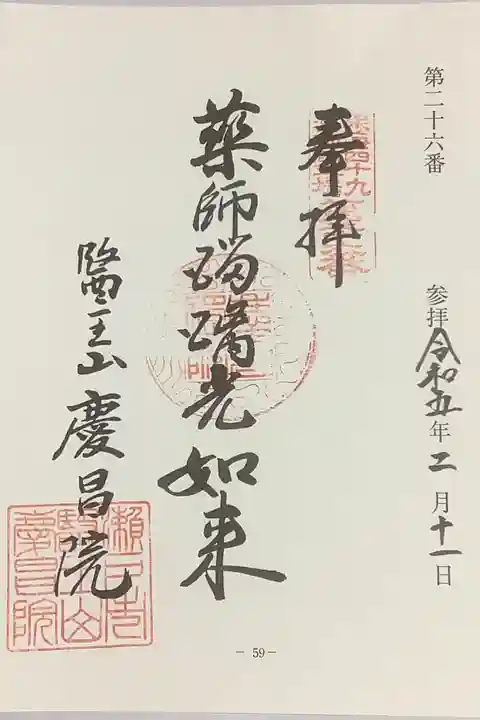 第二十六番
参拝令和五年二月十一日
奉拝
薬師瑠璃光如来
醫王山慶昌院
瀬戸市
醫王山
慶昌院
- 59 -